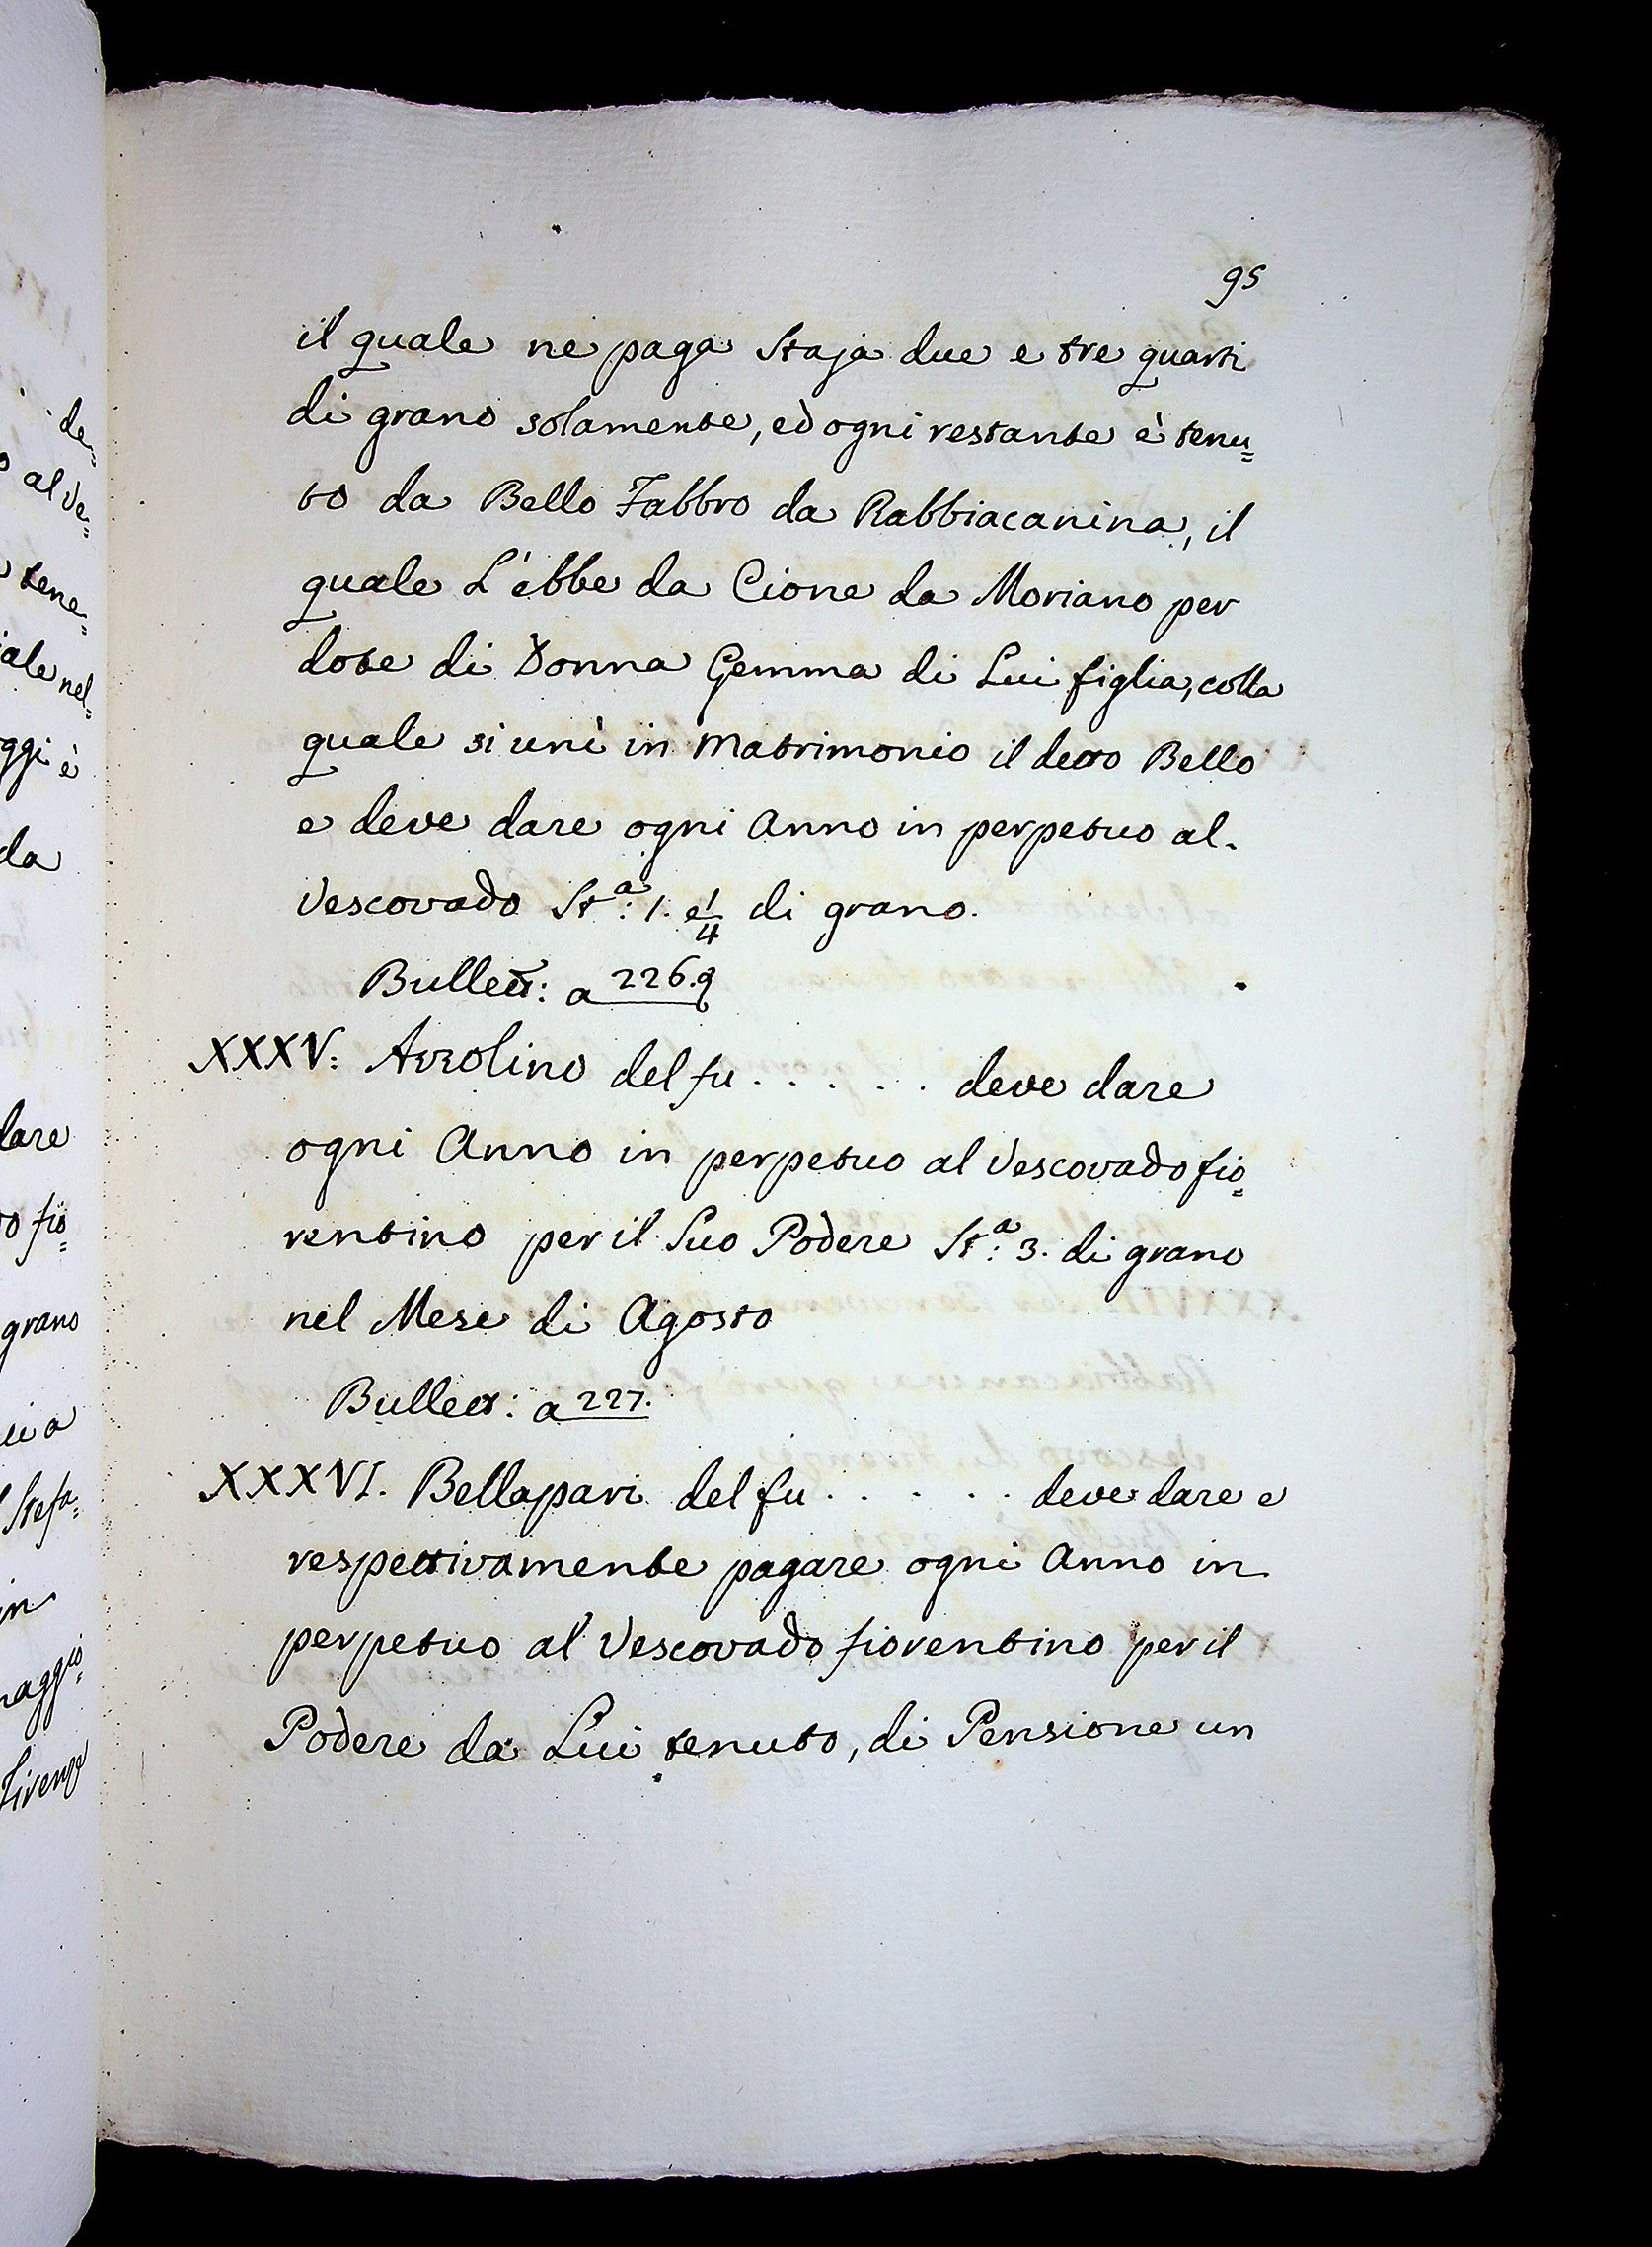 de=
o al Ve=
tene=
iale nel=
ggi è
da
dare
o fio=
grano
Stefa=
in
maggio=
Firenze
95
il quale ne paga Staja due e tre quarti
di grano solamente, ed ogni restante è tenu=
to da Bello Fabbro da Rabbiacanina, il
quale L'ebbe da Cione da Moriano per
dote di Donna Gemma di Lui figlia, colla
quale si unì in Matrimonio il detto Bello
e deve dare ogni Anno in perpetuo al
Vescovado St.ª: 1. e 1/4 di grano.
Bullett: a 226.
XXXV: Azzolino del fu . . . . . . deve dare
ogni Anno in perpetuo al Vescovado fio=
rentino per il Suo Podere St.ª: 3. di grano
nel Mese di Agosto
Bullett: a 227.
XXXVI. Bellapari del fu . . . . . deve dare e
respettivamente pagare ogni Anno in
perpetuo al Vescovado fiorentino per il
Podere da Lui tenuto, di Pensione un